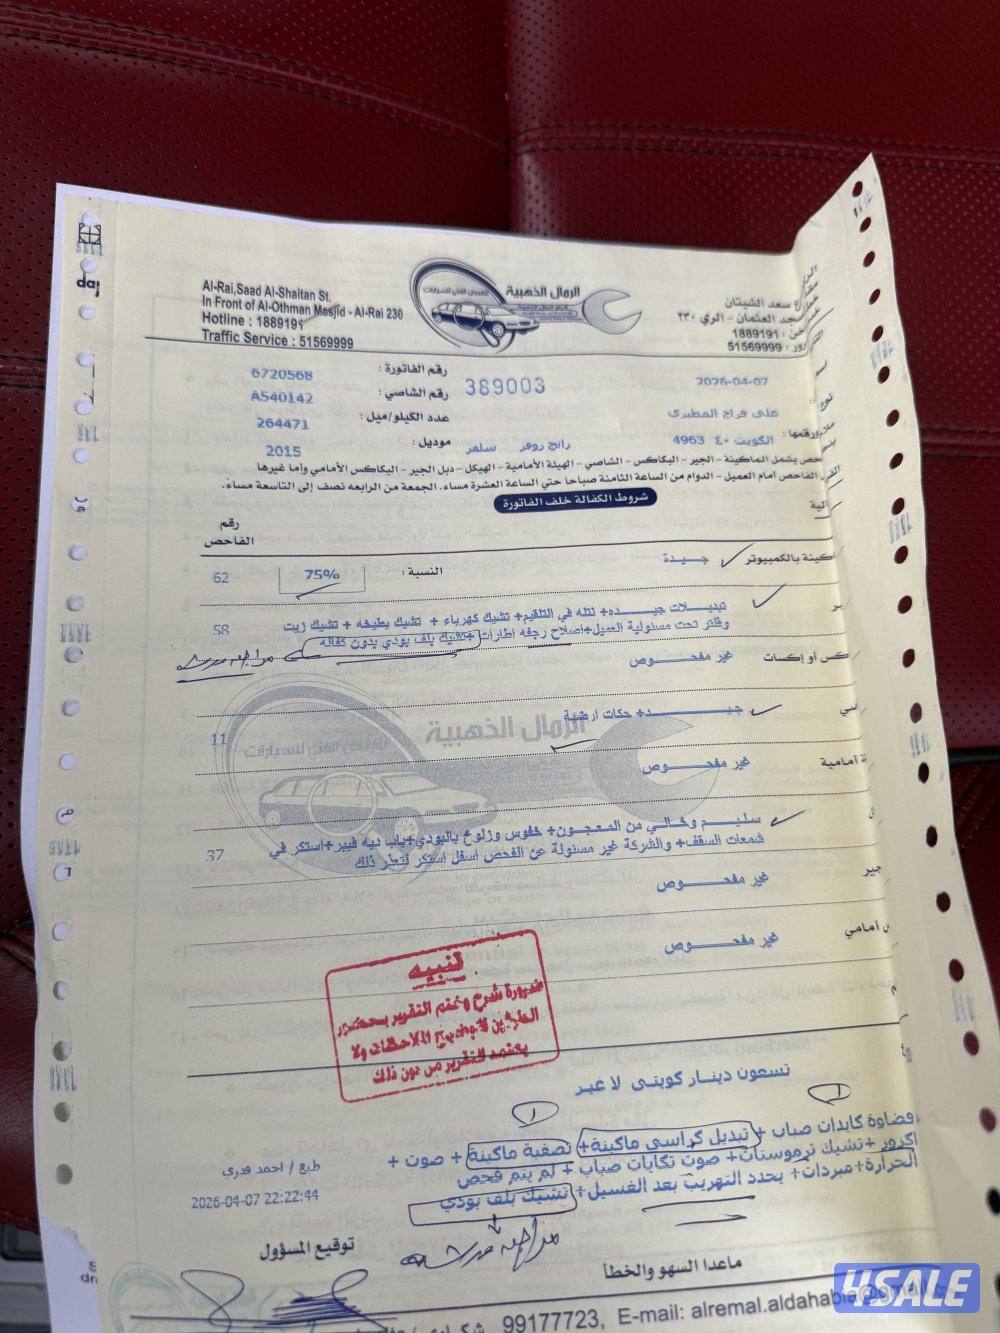 Al-Rai,Saad Al-Shaitan St.
In Front of Al-Othman Masjid - Al-Rai 230
Hotline : 1889191
Traffic Service : 51569999
الرمال الذهبية
الفحص الفني للسيارات
سعد الشيتان
العثمان - الري ٢٣٠
1889191 :
51569999 :
رقم الفاتورة : 6720568
389003
2026-04-07
رقم الشاصي : A540142
علي فراج المطيري
عدد الكيلو/ميل : 264471
الكويت ٤٠ 4963
موديل : 2015
رانج روفر سلفر
حص يشمل الماكينة - الجير - البكاكس - الشاصي - الهيئة الأمامية - الهيكل - دبل الجير - البكاكس الأمامي وأما غيرها
الفاحص أمام العميل - الدوام من الساعة الثامنة صباحا حتي الساعة العشرة مساء. الجمعة من الرابعه نصف إلى التاسعة مساء.
شروط الكفالة خلف الفاتورة
رقم
الفاحص
كينة بالكمبيوتر جيدة النسبة : 75% 62
تبديلات جيده+ نتله في التلقيم+ تشيك كهرباء + تشيك بطيخه + تشيك زيت
58
وفلتر تحت مسئولية العميل+اصلاح رجفه اطارات+تشيك بلف بودي بدون كفاله
كس أو إكسات غير مفحوص
جيد+ حكات ارضية 11
الرمال الذهبية
أمامية غير مفحوص
سليم وخالي من المعجون+ خفوس وزلوخ بالبودي+باب دبه فيبر+استكر في
37
شمعات السقف+ والشركة غير مسئولة عن الفحص أسفل استكر لتعذر ذلك
جير غير مفحوص
أمامي غير مفحوص
تنبيه
ضرورة شرح وختم التقرير بحضور
الطرفين لتوضيح الملاحظات ولا
يعتمد التقرير من دون ذلك
تسعون دينار كويتى لا غير
فضاوة كايدات صباب + تبديل كراسي ماكينة+ تصفية ماكينة + صوت +
اكزوز +تشيك ترموستات+ صوت تكايات صباب + لم يتم فحص
الحرارة+ مبردات+ يحدد التهريب بعد الغسيل+ تشيك بلف بودي
طبع / احمد قدري
2026-04-07 22:22:44
توقيع المسؤول
ماعدا السهو والخطأ
99177723, E-mail: alremal.aldahabia@gmail.c
4SALE